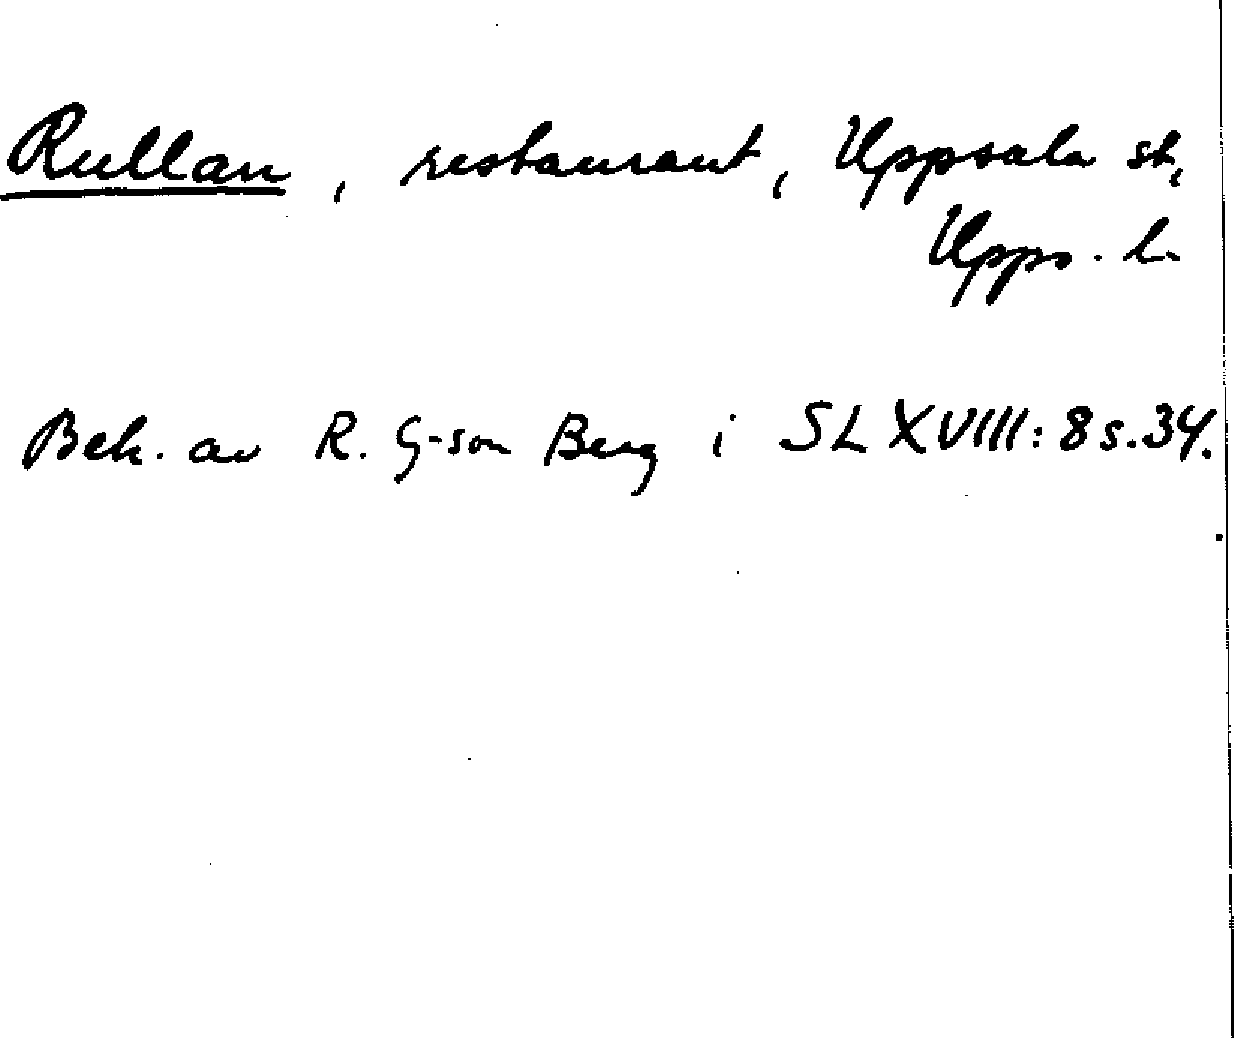 Rullan, restaurant, Uppsala st,
Upps. l.
Beh. av R. G-son Berg i SL XVIII: 8 s. 34.